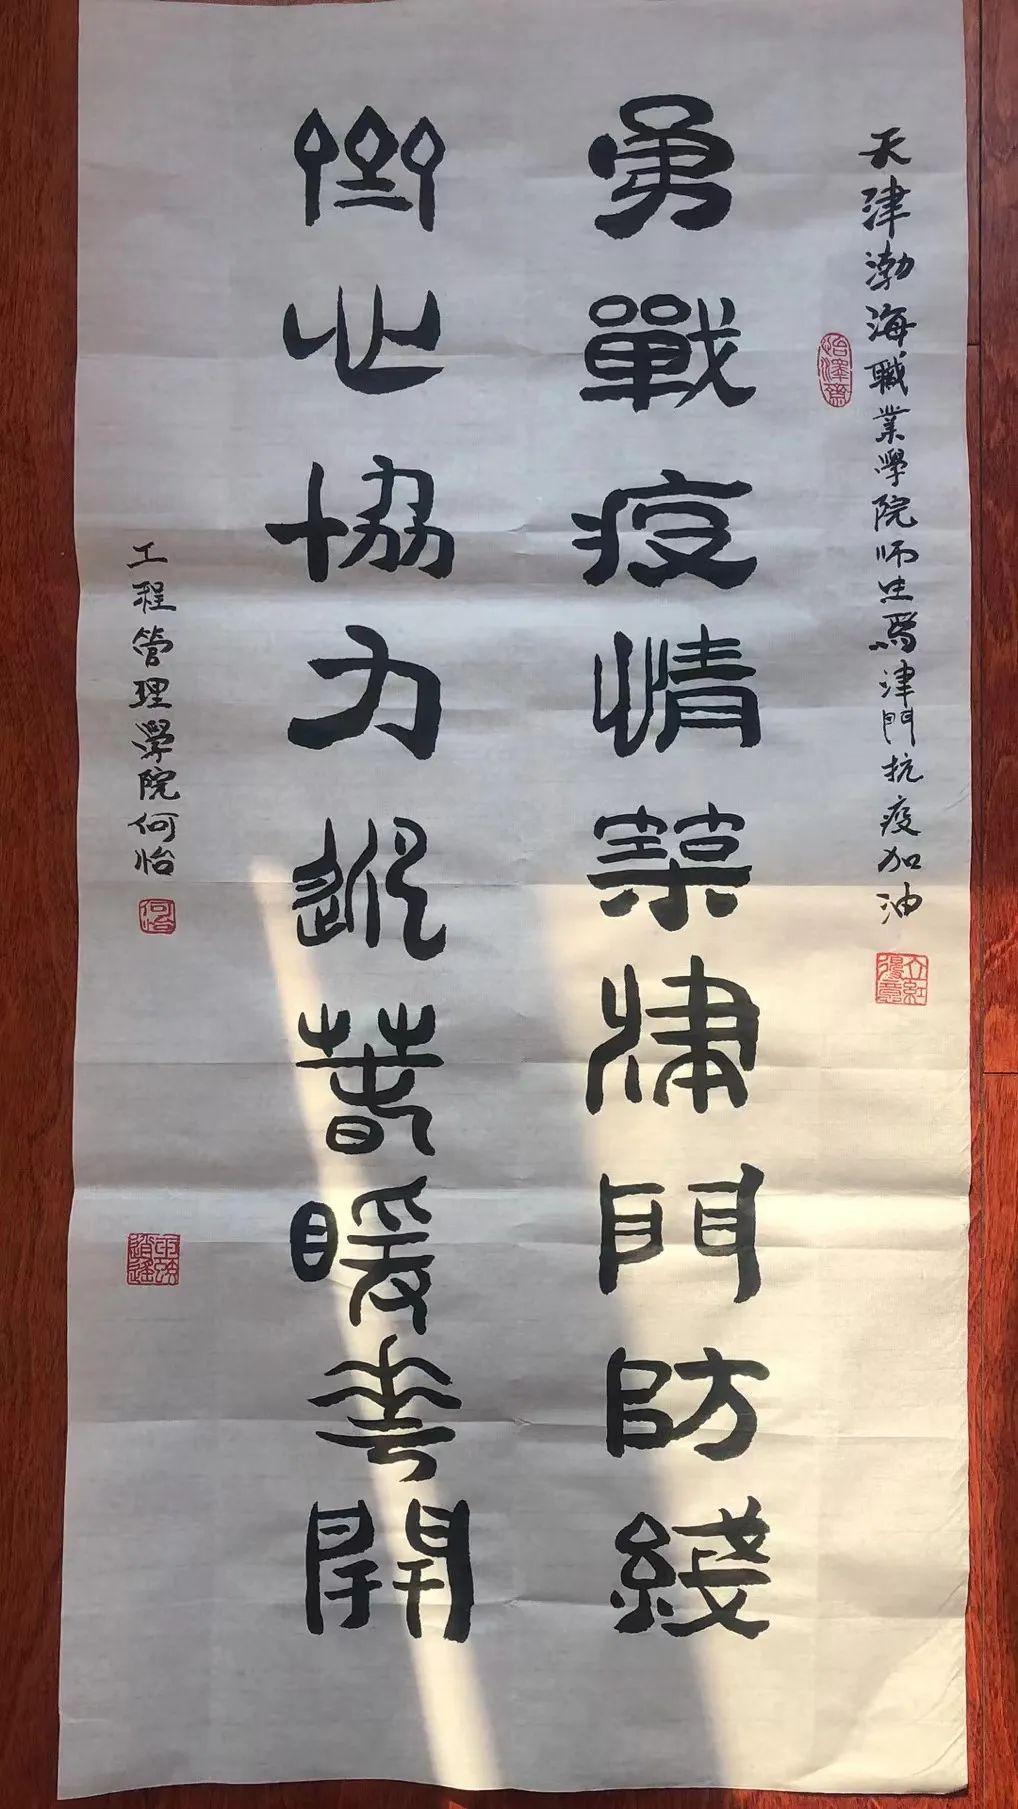 天津渤海職業學院师生爲津門抗疫加油
怡澤齋
勇戰疫情築津門防綫
齊心協力迎春暖花開
工程管理學院何怡
何怡